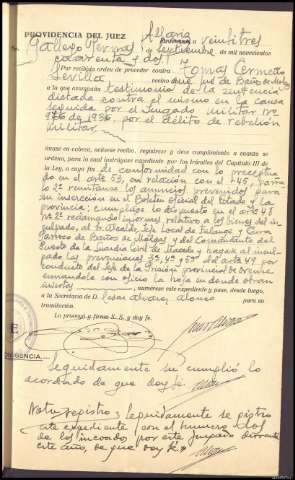 PROVIDENCIA DEL JUEZ Allariz veintitres
Gallego Vermas septiembre de mil novecientos
cuarenta y dos
Por recibido orden de proceder contra Tomas
Sevilla vecino que fué de Baños de Molgas
a la que acompaña testimonio de la sentencia
dictada contra el mismo en la causa
seguida por el Juzgado militar nº
976 de 1936, por el delito de rebelión
militar.
únase en cabeza, acúsese recibo, regístrese y désele cumplimiento a cuanto se
ordena, para lo cual instrúyase expediente por los trámites del Capítulo III de
la Ley, a cuyo fin de conformidad con lo precep
do en el art 53, en relación con el 45, para
lo 2º remítanse los anuncios prevenidos para
su inserción en el Boletín oficial del Estado y la
provincia; cumplase lo dispuesto en el artº 48
nº 2º reclamando informes relativos a los bienes del in-
culpado, al Sr. Alcalde, Jefe Local de Falange y Cura
Párroco de Baños de Molgas y del Comandante del
Puesto de la Guardia Civil de y hagase al incul-
pado las prevenciones 3ª, 4ª y 5ª del artº 49 por
conducto del Jefe de la Prisión provincial de Orense
con oficio la hoja en donde obran
numérese este expediente y pase, desde luego,
a la Secretaria de D. Cesar Alvarez Alonso para su
tramitación.
Lo proveyó y firma S. S. y doy fe.
DILIGENCIA.
Seguidamente se cumplió lo
acordado de que doy fe.
Nota registro; Seguidamente se registro
este expediente con el numero
de los incoados por este Juzgado durante
este año, de que doy fe